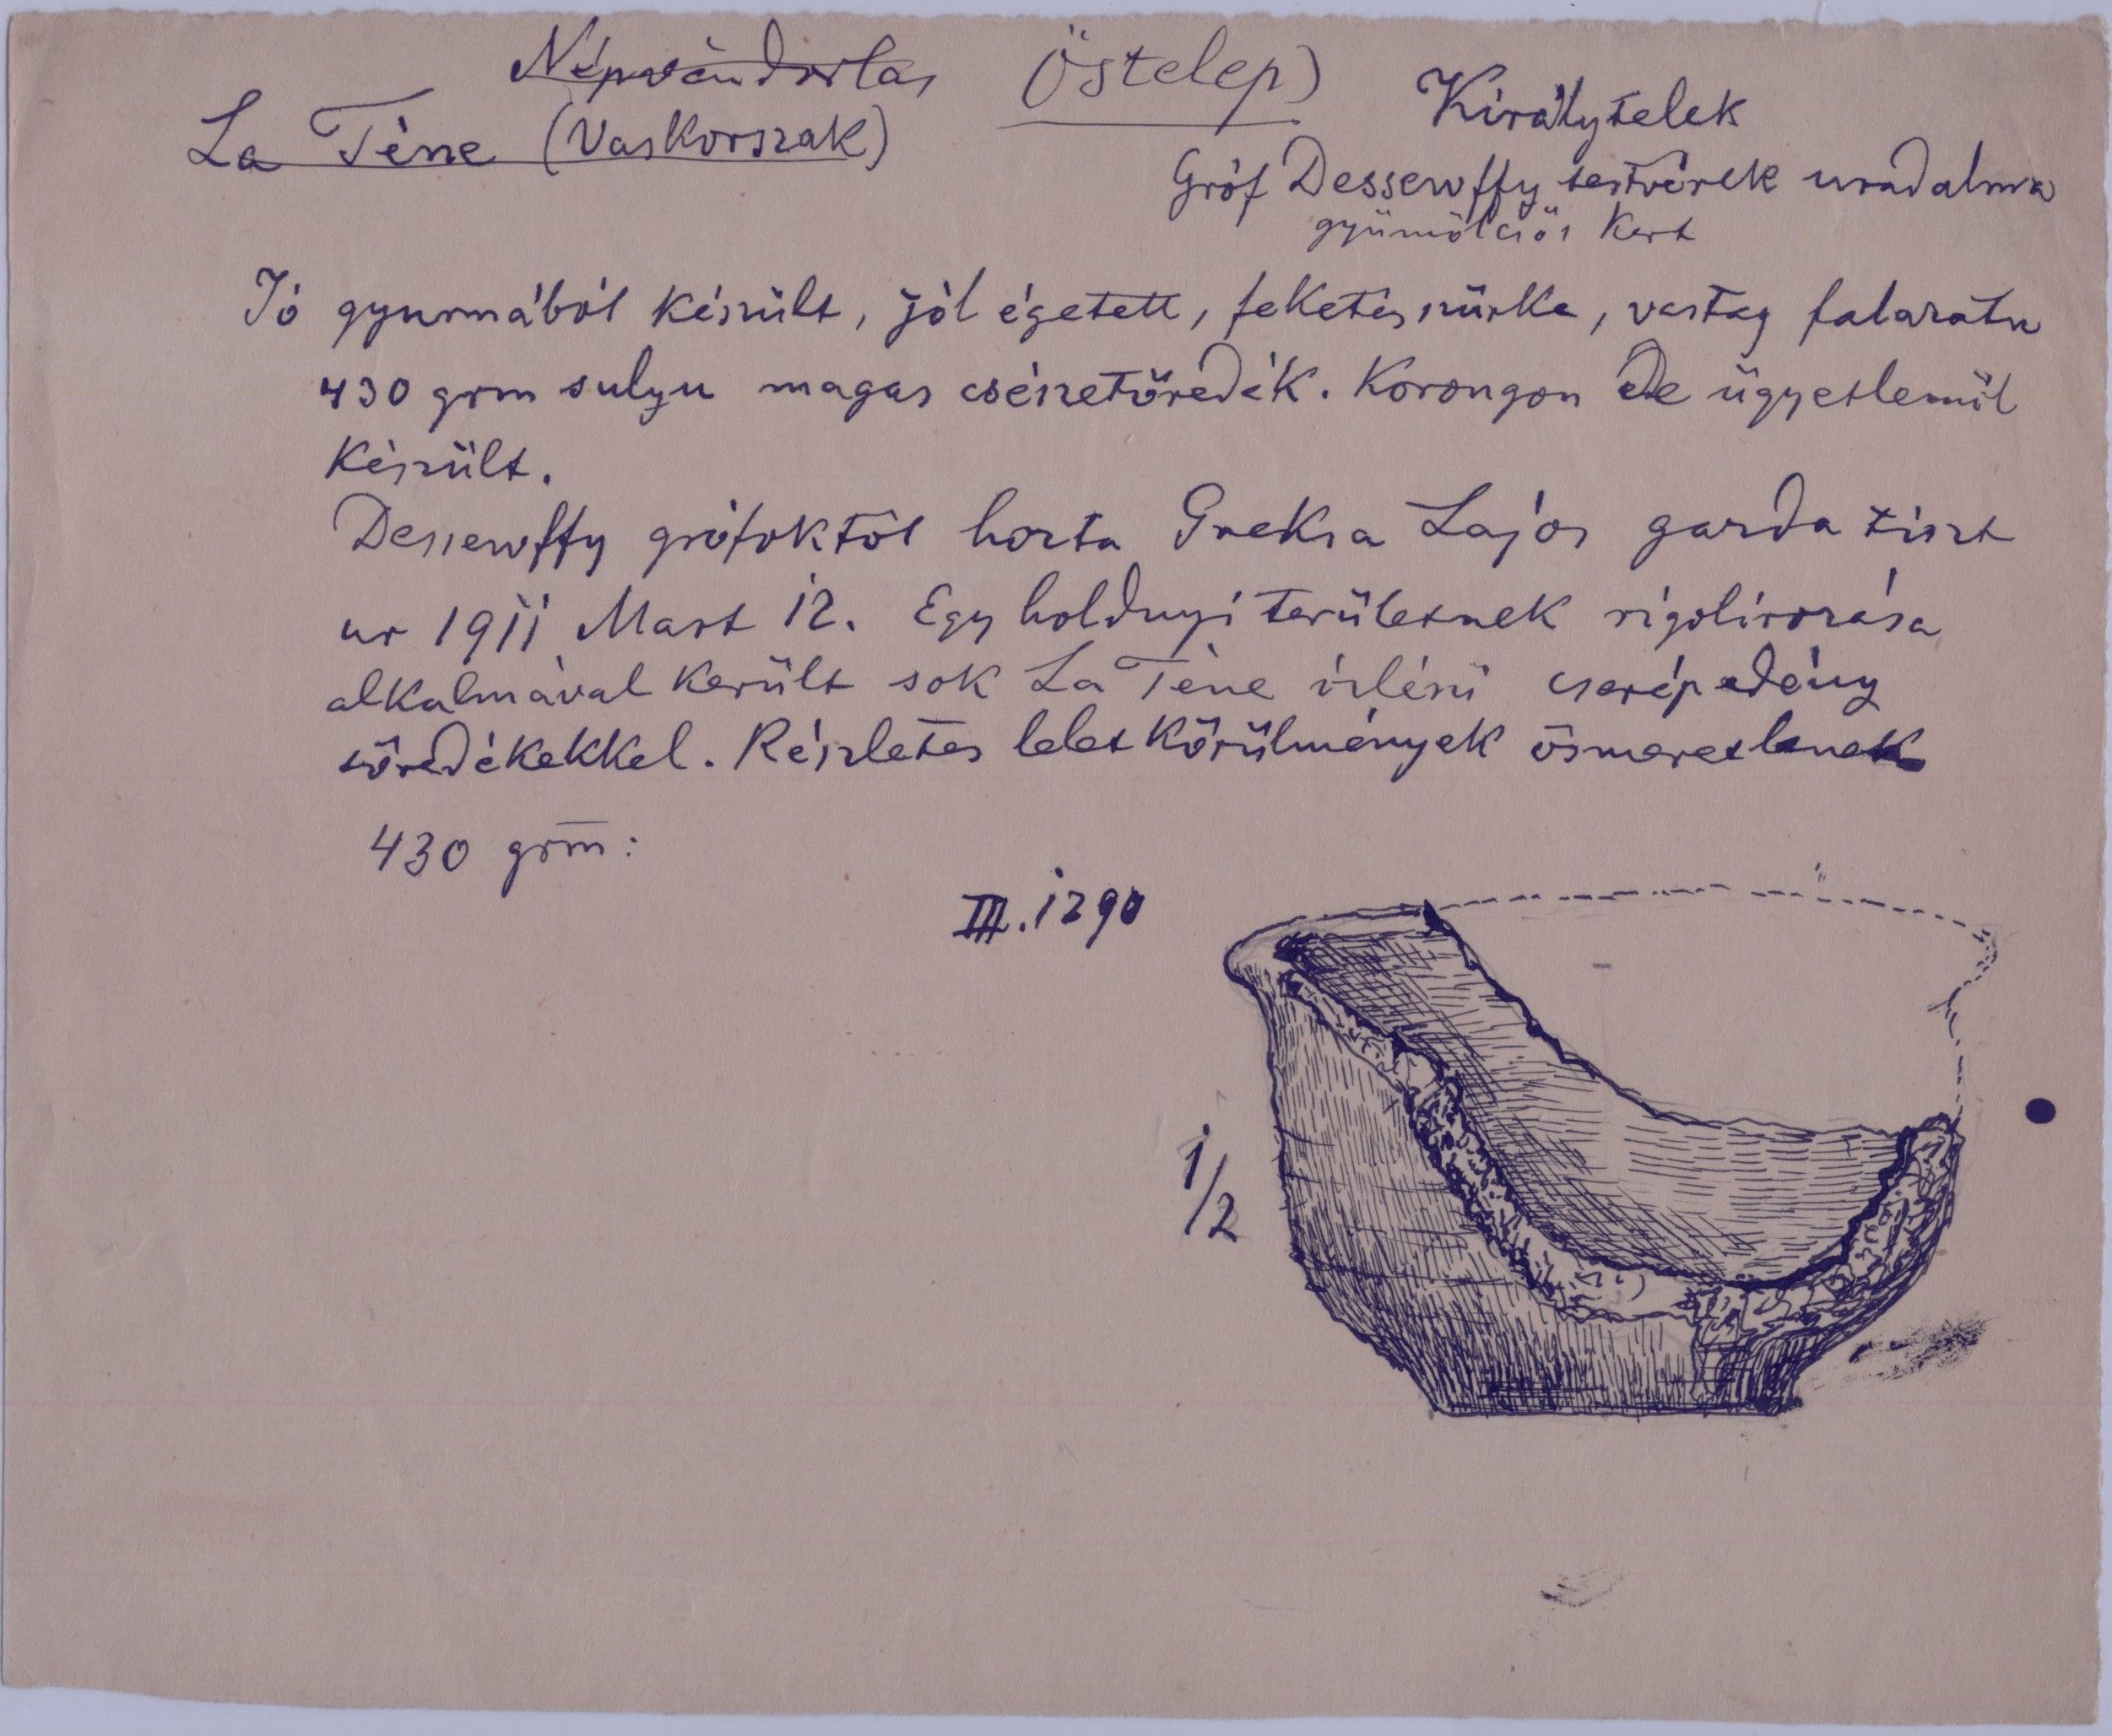 Népvándorlás Östelep)
La Téne (Vaskorszak)
Királytelek
Gróf Dessewffy testvérek uradalma
gyümölcsös Kert
Jó gyurmából készült, jól égetett, feketés szürke, vastag falazatu
430 grm sulyu magas csészetöredék. Korongon de ügyetlenül
készült.
Dessewffy grófoktól hozta Greksa Lajos garda tiszt
ur 1911 Mart 12. Egy holdnyi területnek rigolirozása
alkalmával került sok La Téne izlésü cserépedény
töredékekkel. Részletes lelet körülmények ösmeretlenek
430 grm:
III. 1290
1/2